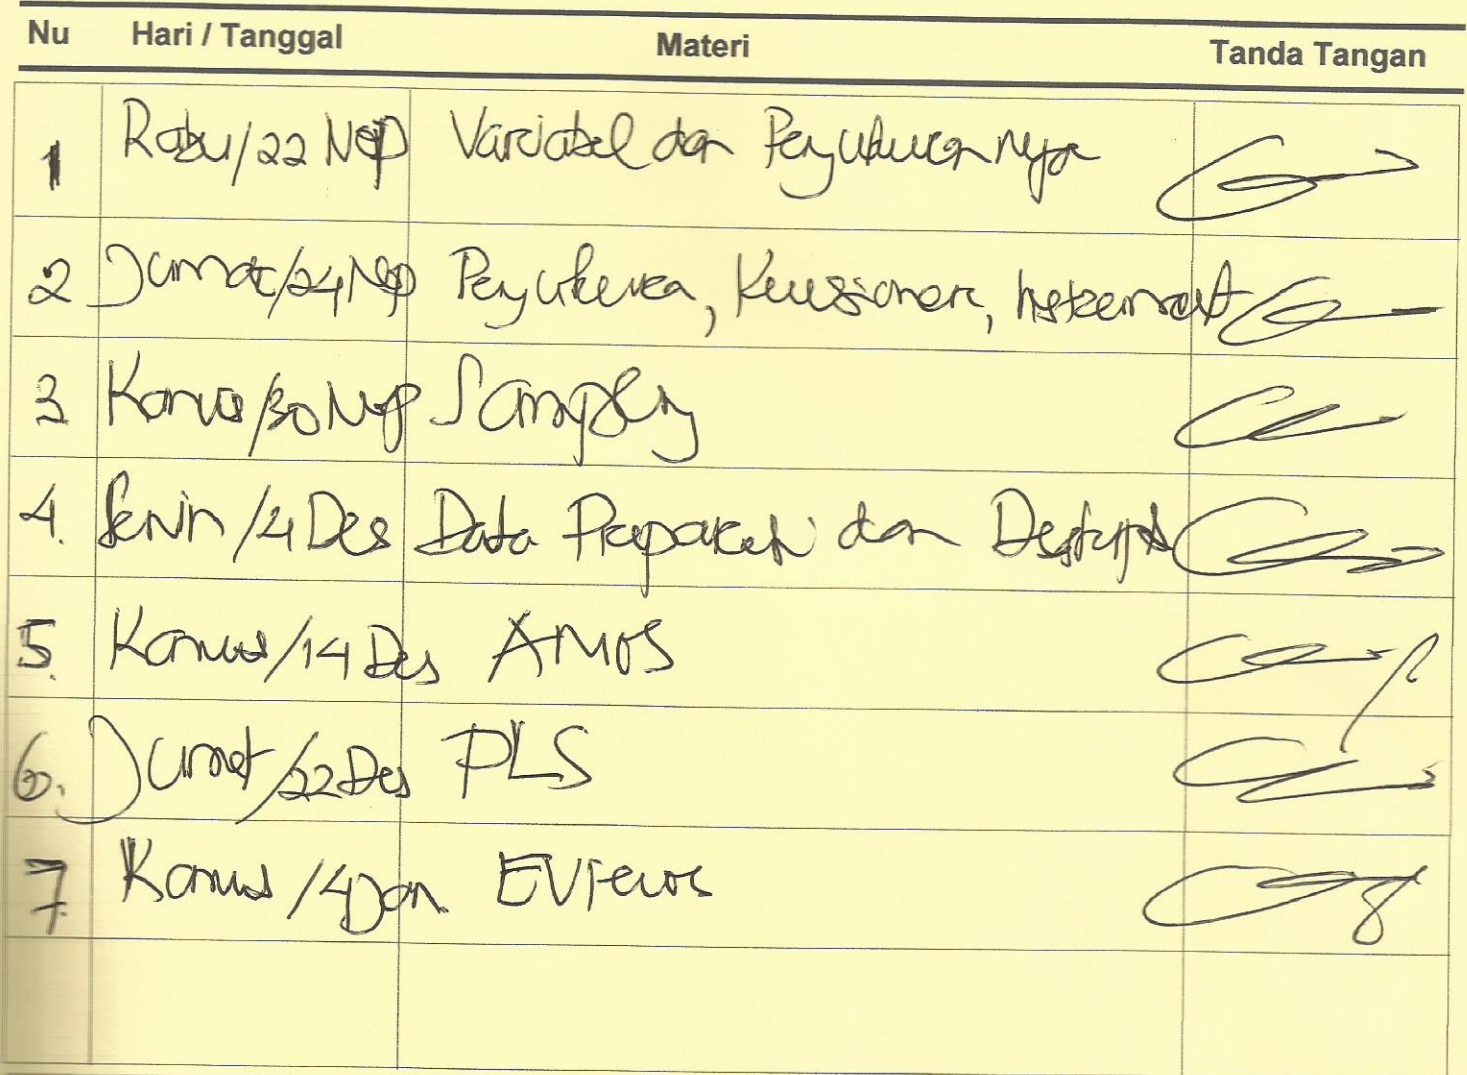 Nu Hari / Tanggal Materi Tanda Tangan
1 Rabu/22 Nop Variabel dan Pengukurannya
2 Jumat/24 Nop Pengukuran, Kuesioner, Instrument
3 Kamis/30 Nop Sampling
4. Senin/4 Des Data Preparati dan Deskript
5. Kamis/14 Des AMOS
6. Jumat/22 Des PLS
7 Kamis/4 Jan EViews